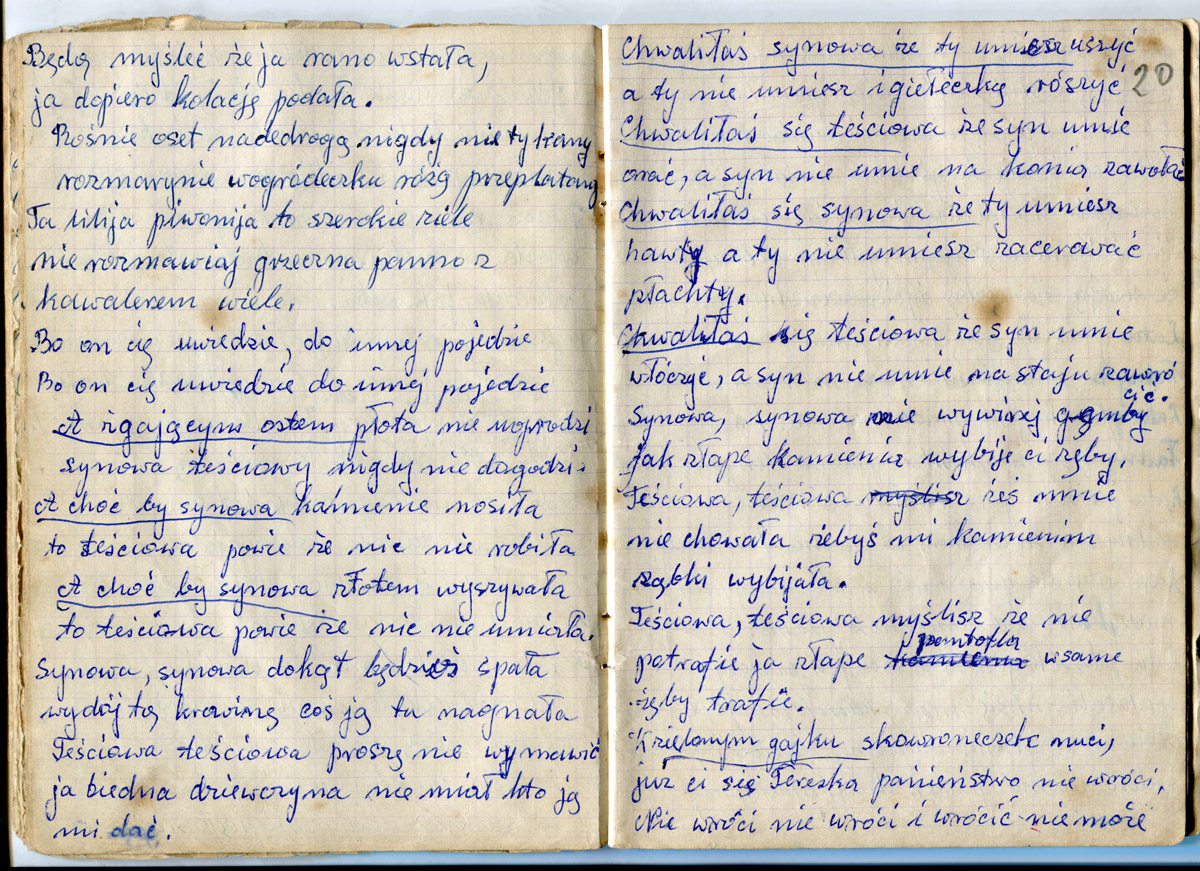 Będą myśleć że ja rano wstała,
ja dopiero kolację podała.
Rośnie oset nadedrogą nigdy nie tykany
rozmarynie wogródeczku różą przeplatany
Ta lilija piwonija to szerokie ziele
nie rozmawiaj grzeczna panno z
kawalerem wiele.
Bo on cię uwiedzie, do innej pojedzie
Bo on cię uwiedzie do innej pojedzie
A żgającym ostem płota nie ugrodzi
synowa teściowy nigdy nie dogodzi.
A choć by synowa kamienie nosiła
to teściowa powie że nic nie robiła
A choć by synowa złotem wyszywała
to teściowa powie że nic nie umiała.
Synowa, synowa dokąt będziesz spała
wydój tą krowinę coś ją tu nagnała
Teściowa teściowa proszę nie wymawić
ja biedna dziewczyna nie miał kto ją
mi dać.
20
Chwaliłaś synowa że ty umiesz uszyć
a ty nie umiesz igiełeczką rószyć
Chwaliłaś się teściowa że syn umie
orać, a syn nie umie na konia zawołać
Chwaliłaś się synowa że ty umiesz
hawty a ty nie umiesz zacerować
płachty.
Chwaliłaś się teściowa że syn umie
włóczyć, a syn nie umie na staju zawró
cić.
Synowa, synowa nie wywiraj gęmby
jak złape kamienia wybije ci zęby,
Teściowa, teściowa myślisz żeś mnie
nie chowała żebyś mi kamienim
ząbki wybijała.
Teściowa, teściowa myślisz że nie
pantofla
potrafie ja złape kamienia wsame
zęby trafie.
W zielonym gajku skowroneczek nuci,
już ci się Tereska panieństwo nie wróci,
Nie wróci nie wróci i wrócić nie może